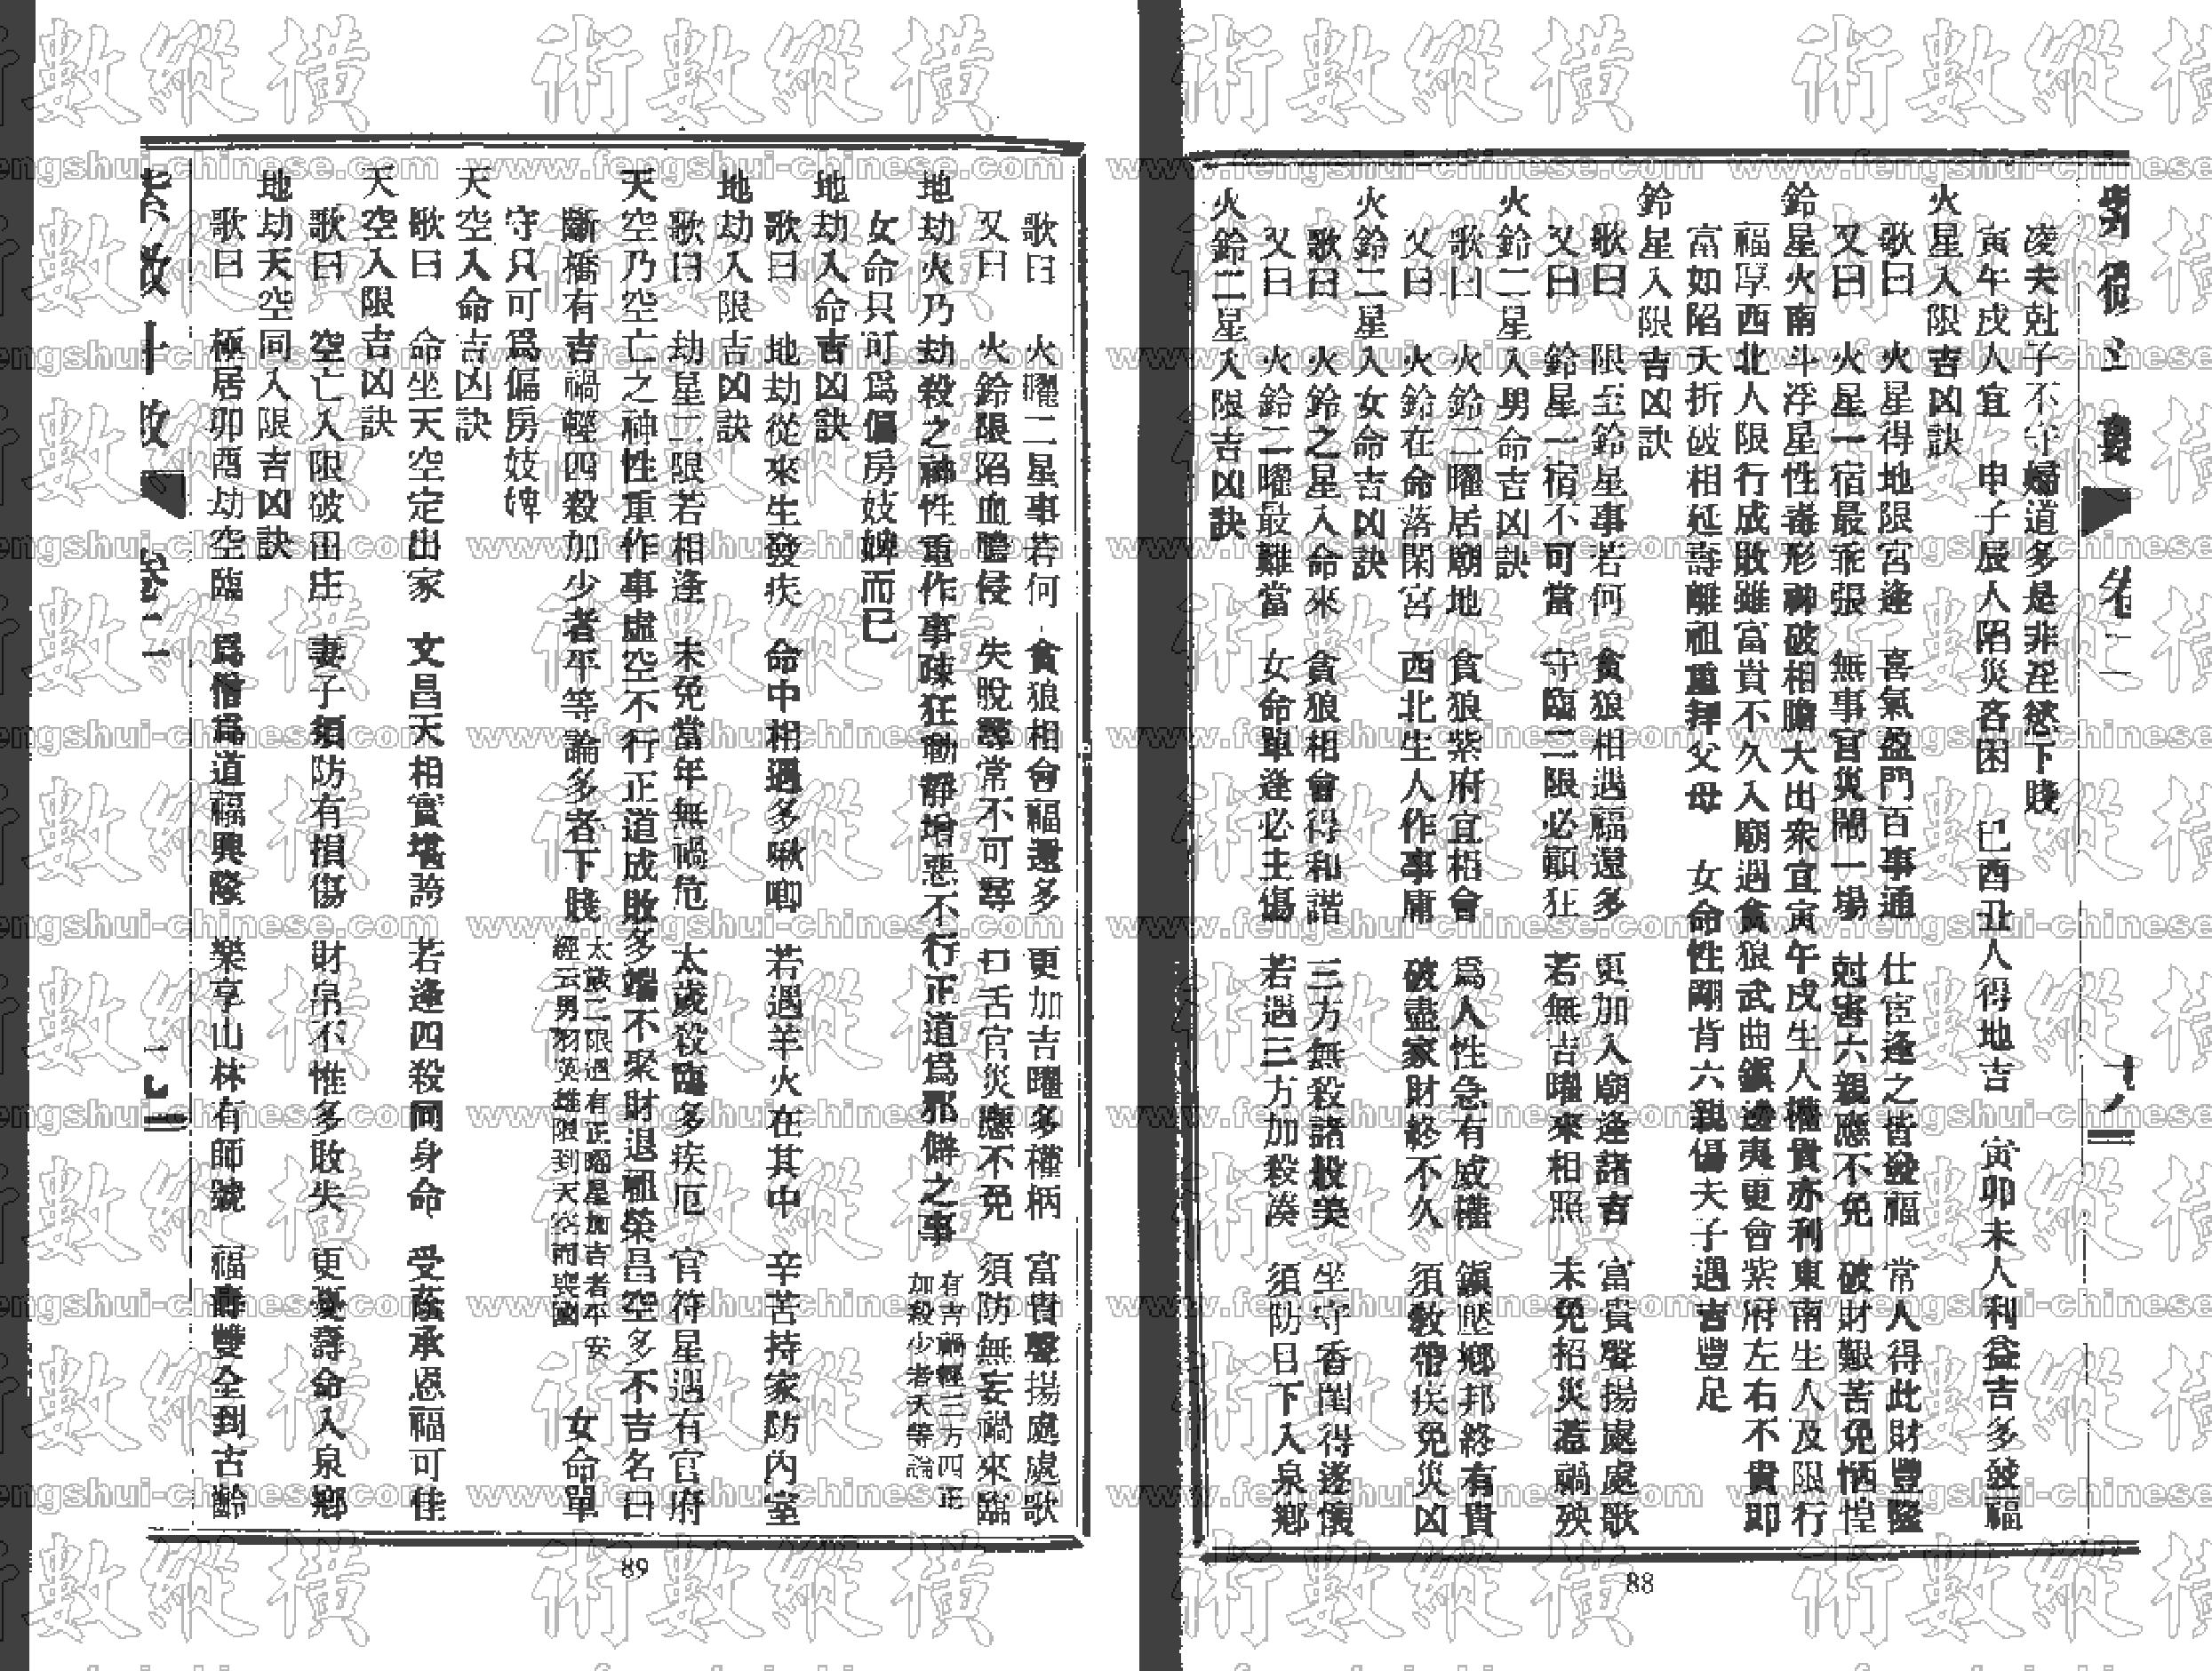 凌夫尅子不守婦道多是非淫慾下賤
寅午戌人宜　申子辰人陷災吝困　巳酉丑人得地吉　寅卯未人利益吉多發福
火星入限吉凶訣
歌曰　火星得地限宮逢　喜氣盈門百事通　仕宦逢之皆發福　常人得此財豐隆
又曰　火星一宿最乖張　無事官災鬧一場　尅害六親應不免　破財艱苦免恓惶
鈴星火南斗浮星性毒形神破相膽大出衆宜寅午戌生人權貴亦利東南生人及限行
福厚西北人限行成敗雖富貴不久入廟遇貪狼武曲鎮邊夷更會紫府左右不貴即
富如陷夭折破相延壽離祖重拜父母　女命性剛背六親傷夫子遇吉豐足
鈴星入限吉凶訣
歌曰　限至鈴星事若何　貪狼相遇福還多　更加入廟逢諸吉　富貴聲揚處處歌
又曰　鈴星一宿不可當　守臨二限必顛狂　若無吉曜來相照　未免招災惹禍殃
火鈴二星入男命吉凶訣
歌曰　火鈴二曜居廟地　貪狼紫府宜相會　爲人性急有威權　鎮壓鄉邦終有貴
又曰　火鈴在命落閑宮　西北生人作事庸　破盡家財終不久　須教帶疾免災凶
火鈴二星入女命吉凶訣
歌曰　火鈴之星入命來　貪狼相會得和諧　三方無殺諸般美　坐守香閨得遂懷
又曰　火鈴二曜最難當　女命單逢必主傷　若遇三方加殺湊　須防目下入泉鄉
火鈴二星入限吉凶訣
88
歌曰　火曜二星事若何　貪狼相會福還多　更加吉曜多權柄　富貴聲揚處處歌
又曰　火鈴限陷血膿侵　失脫尋常不可尋　口舌官災應不免　須防無妄禍來臨
地劫火乃劫殺之神性重作事疎狂動靜增惡不行正道爲邪僻之事　有吉禍輕三方四正
加殺少者夭等論
女命只可爲偏房妓婢而已
地劫入命吉凶訣
歌曰　地劫從來生發疾　命中相遇多啾唧　若遇羊火在其中　辛苦持家防內室
地劫入限吉凶訣
歌曰　劫星二限若相逢　未免當年無禍危　太歲殺臨多疾厄　官符星遇有官府
天空乃空亡之神性重作事虛空不行正道成敗多端不聚財退祖榮昌空多不吉名曰
斷橋有吉禍輕四殺加少者平等論多者下賤　太歲二限遇有正曜星加吉者平安
經云男羽英雄限到天空而喪國　女命單
守只可爲偏房妓婢
天空入命吉凶訣
歌曰　命坐天空定出家　文昌天相實堪誇　若逢四殺同身命　受蔭承恩福可佳
天空入限吉凶訣
歌曰　空亡入限破田庄　妻子須防有損傷　財帛不惟多敗失　更憂壽命入泉鄉
地劫天空同入限吉凶訣
歌曰　極居卯酉劫空臨　爲僧爲道福興隆　樂享山林有師號　福壽雙全到古齡
89